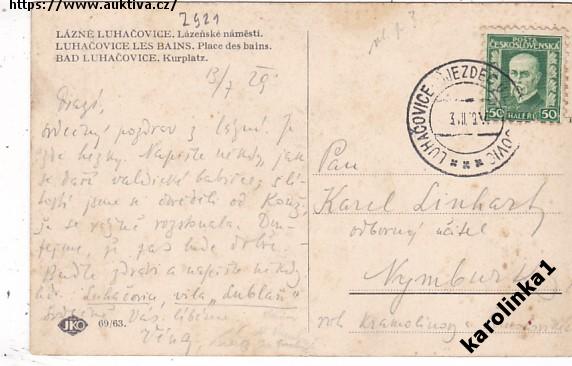 https://www.auktiva.cz/
2921
LÁZNĚ LUHAČOVICE. Lázeňské náměstí.
LUHAČOVICE LES BAINS. Place des bains.
BAD LUHAČOVICE. Kurplatz.
13/7 29
Drazí,
srdečný pozdrav z lázní. Je
zde hezky. Napište někdy, jak
se daří valdické babičce,
jsme se dověděli od
že se vážně rozstonala. Dou-
fejme, že zas bude dobře.
Buďte zdrávi a napište někdy
Luhačovice, vila „Lublaň"
Srdečně Vás líbáme
Věna
JKO 69/63.
POŠTA
ČESKOSLOVENSKÁ
50 HALÉŘŮ 50
LUHAČOVICE
Pan
Karel Linhart
odborný učitel
Nymburk
roh Kramoliusovy a
karolinka1